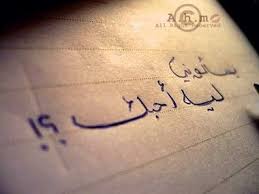 Ahmo
All Right reserved
يسألوني
ليه أحبك ؟!